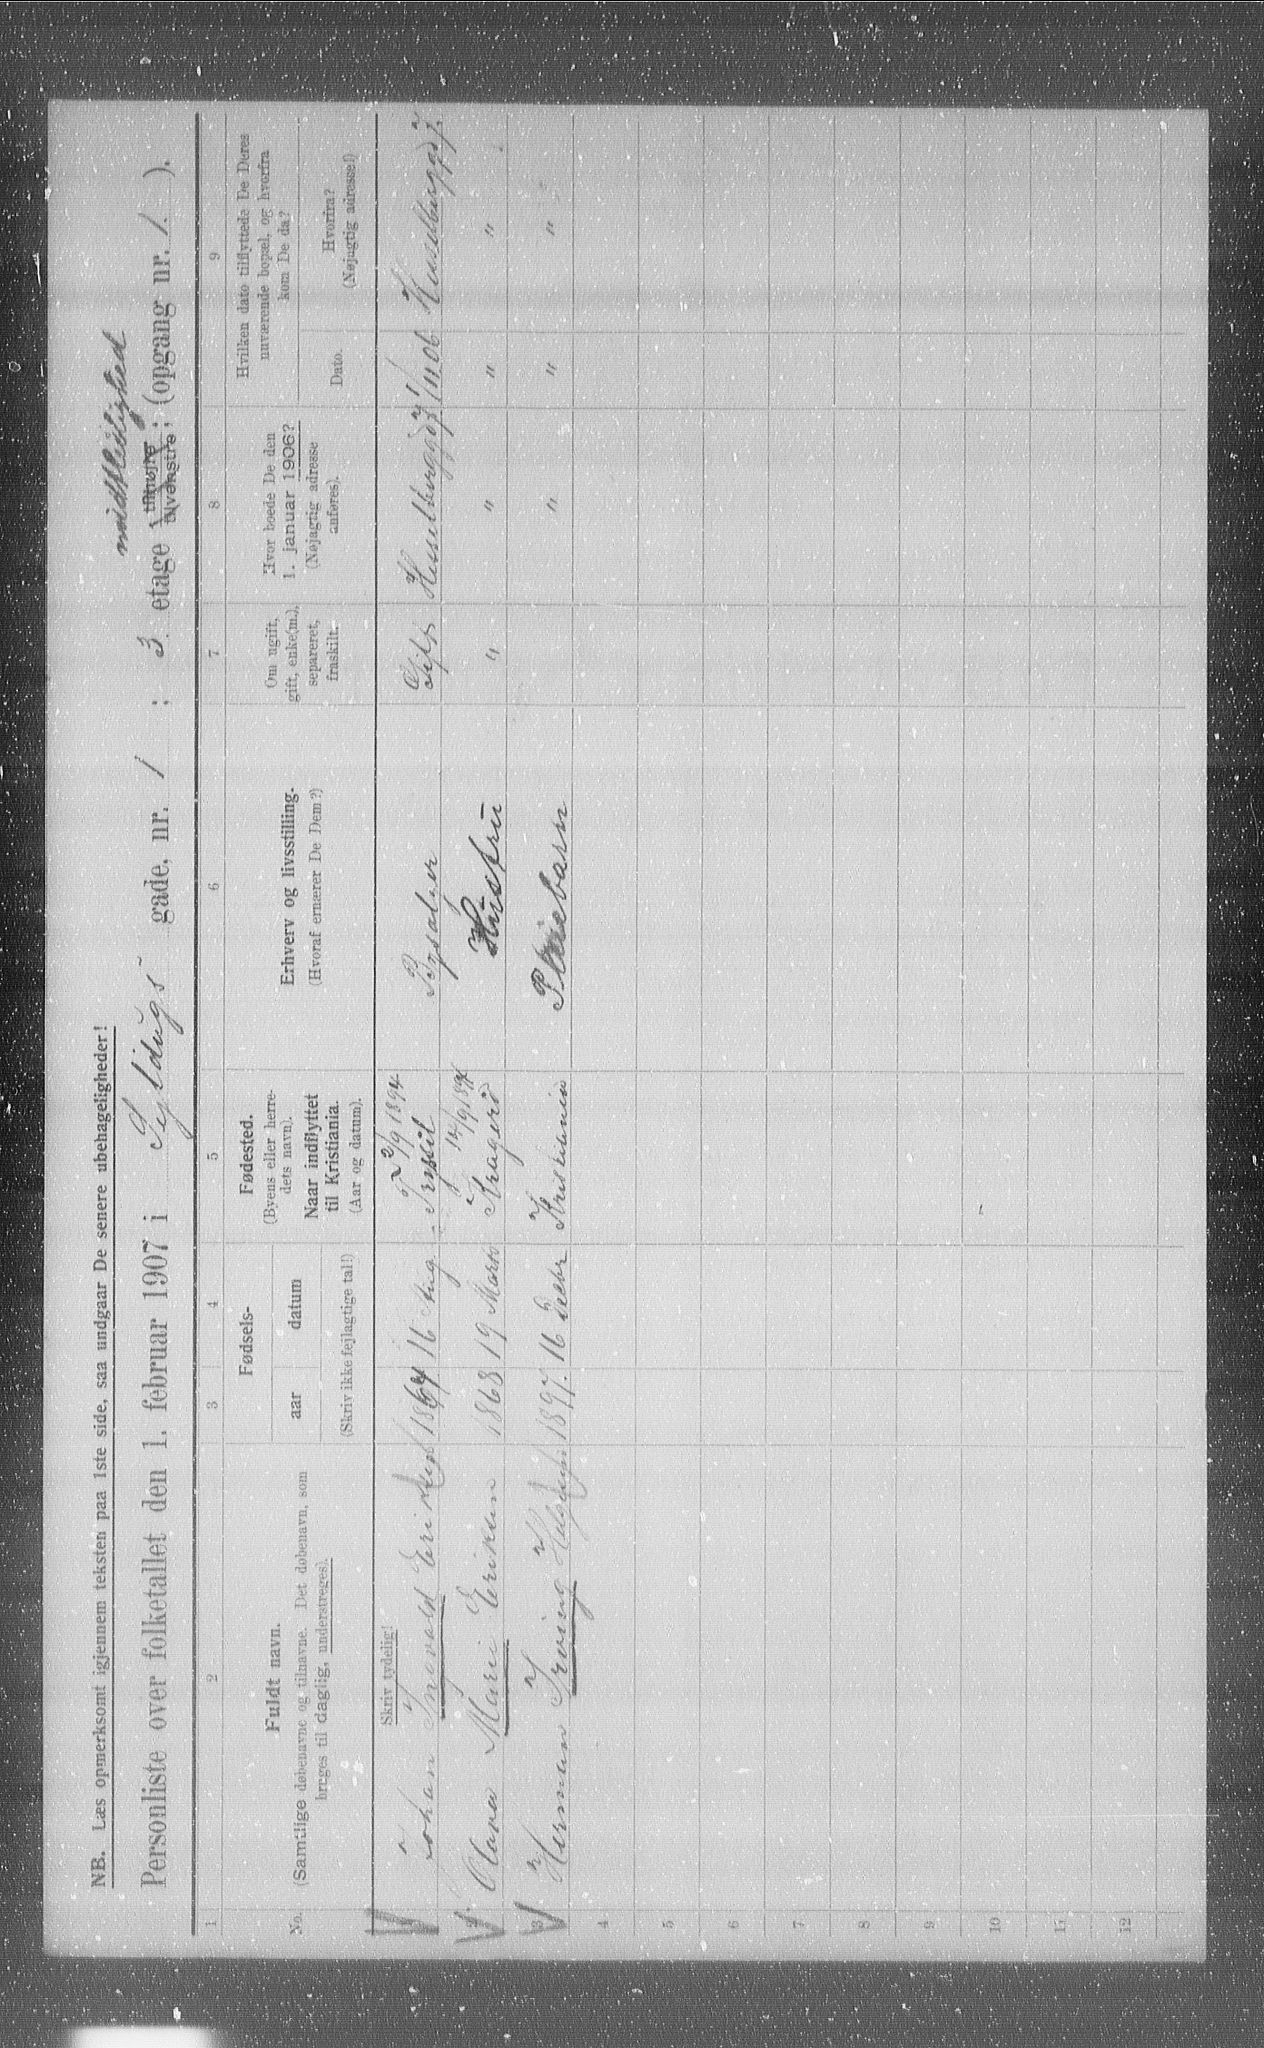 NB. Læs opmerksomt igjennem teksten paa 1ste side, saa undgaar De senere ubehageligheder!
midtleilighed
Personliste over folketallet den 1. februar 1907 i Seildugs gade, nr. 1 ; 3 etage tilhøjre tilvenstre ; (opgang nr. 1. ).
1 2 3 4 5 6 7 8 9
No.
Fuldt navn.
(Samtlige døbenavne og tilnavne. Det døbenavn, som
bruges til daglig, understreges).
Fødsels-
aar datum
(Skriv ikke fejlagtige tal!)
Fødested.
(Byens eller herre-
dets navn).
Naar indflyttet
til Kristiania.
(Aar og datum).
Erhverv og livsstilling.
(Hvoraf ernærer De Dem?)
Om ugift,
gift, enke(m.),
separeret,
fraskilt.
Hvor boede De den
1. januar 1906?
(Nøjagtig adresse
anføres).
Hvilken dato tilflyttede De Deres
nuværende bopæl, og hvorfra
kom De da?
Dato.
Hvorfra?
(Nøjagtig adresse!)
Skriv tydelig!
1 Johan Ingvald Eriksen 1864 16 Aug. Trysil 2/9 1894 Gift Hesselberggd 7 1/11 06 Hesselberggd 7.
2 Olava Marie Eriksen 1868 19 Marts Kragerö Hustru " " " "
3 Herman Irving 1897. 16 Decbr Kristiania Pleiebarn " " "
4
5
6
7
8
9
10
11
12